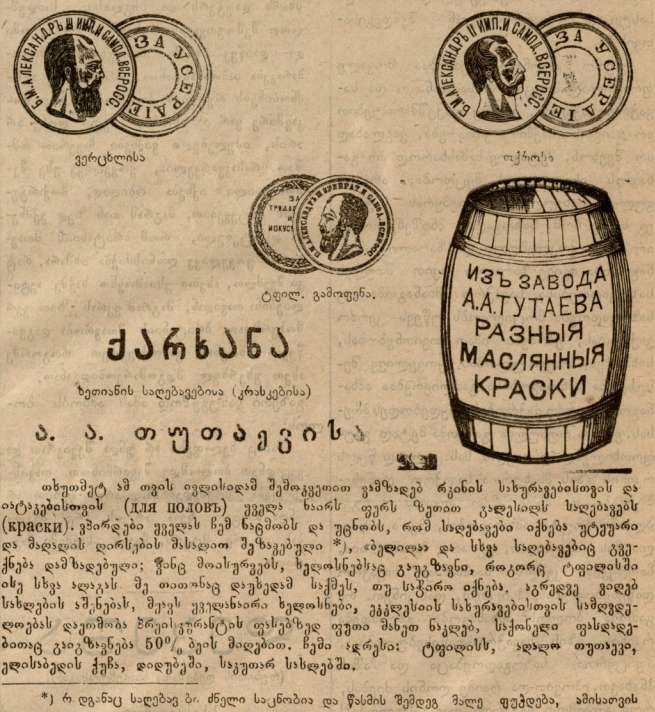 Б.М.АЛЕКСАНДРЪ II ИМП.И САМОД.ВСЕРОСС.
ЗА УСЕРДІЕ
Б.М.АЛЕКСАНДРЪ II ИМП.И САМОД.ВСЕРОСС.
ЗА УСЕРДІЕ
ვერცხლისა
ოქროსი
ЗА
И
ტფილ. გამოფენა.
ИЗЪ ЗАВОДА
А.А.ТУТАЕВА
РАЗНЫЯ
МАСЛЯННЫЯ
КРАСКИ
ქარხანა
ზეთიანის საღებავებისა (კრასკებისა)
ა. ა. თუთაევისა
თხუთმეტ ამ თვის ივლისიდამ შემოკვეთით ვამზადებ რკინის სახურავებისთვის და
იატაკებისთვის (для половъ) ყველა ნაირს ფერს ზეთით გალესილს საღებავებს
(краски). ვპირდები ყველას ჩემ ნაცნობს და უცნობს, რომ საღებავები იქნება უტყუარი
და მაღალის ღირსების მასალით შეზავებული *), ბელილა და სხვა საღებავებიც გვე-
ქნება დამზადებული; ვინც მოისურვებს, ხელოსნებსაც გაუგზავნი, როგორც ტფილისში
ისე სხვა ალაგას. მე თითონაც დაუხედამ საქმეს, თუ საჭირო იქნება. აგრედვე ვიღებ
სახლების აშენებას, მყავს ყველანაირი ხელოსნები, ეკკლესიის სახურავებისთვის სამღვდე-
ლოებას დაეთმობა პრეისკურანტის ფასებზედ ფუთი მანეთ ნაკლებ, საქონელი ფასდადე-
ბითაც გაიგზავნება 50% ბეის მიღებით. ჩემი ადრესი: ტფილისს, ადალო თუთაევი,
ელისაბედის ქუჩა, დიდუბეში, საკუთარ სახლებში.
*) რადგანაც საღებავ ძნელი საცნობია და წასმის შემდეგ მალე ფუჭდება, ამისათვის